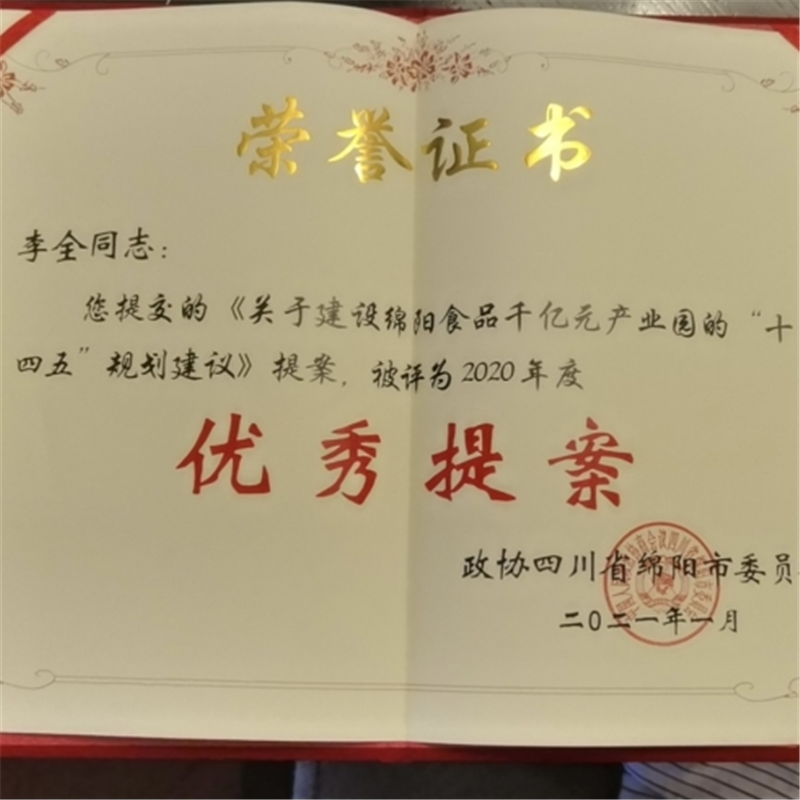 荣誉证书
李全同志：
您提交的《关于建设绵阳食品千亿元产业园的“十
四五”规划建议》提案，被评为2020年度
优秀提案
政协四川省绵阳市委员
二〇二一年一月